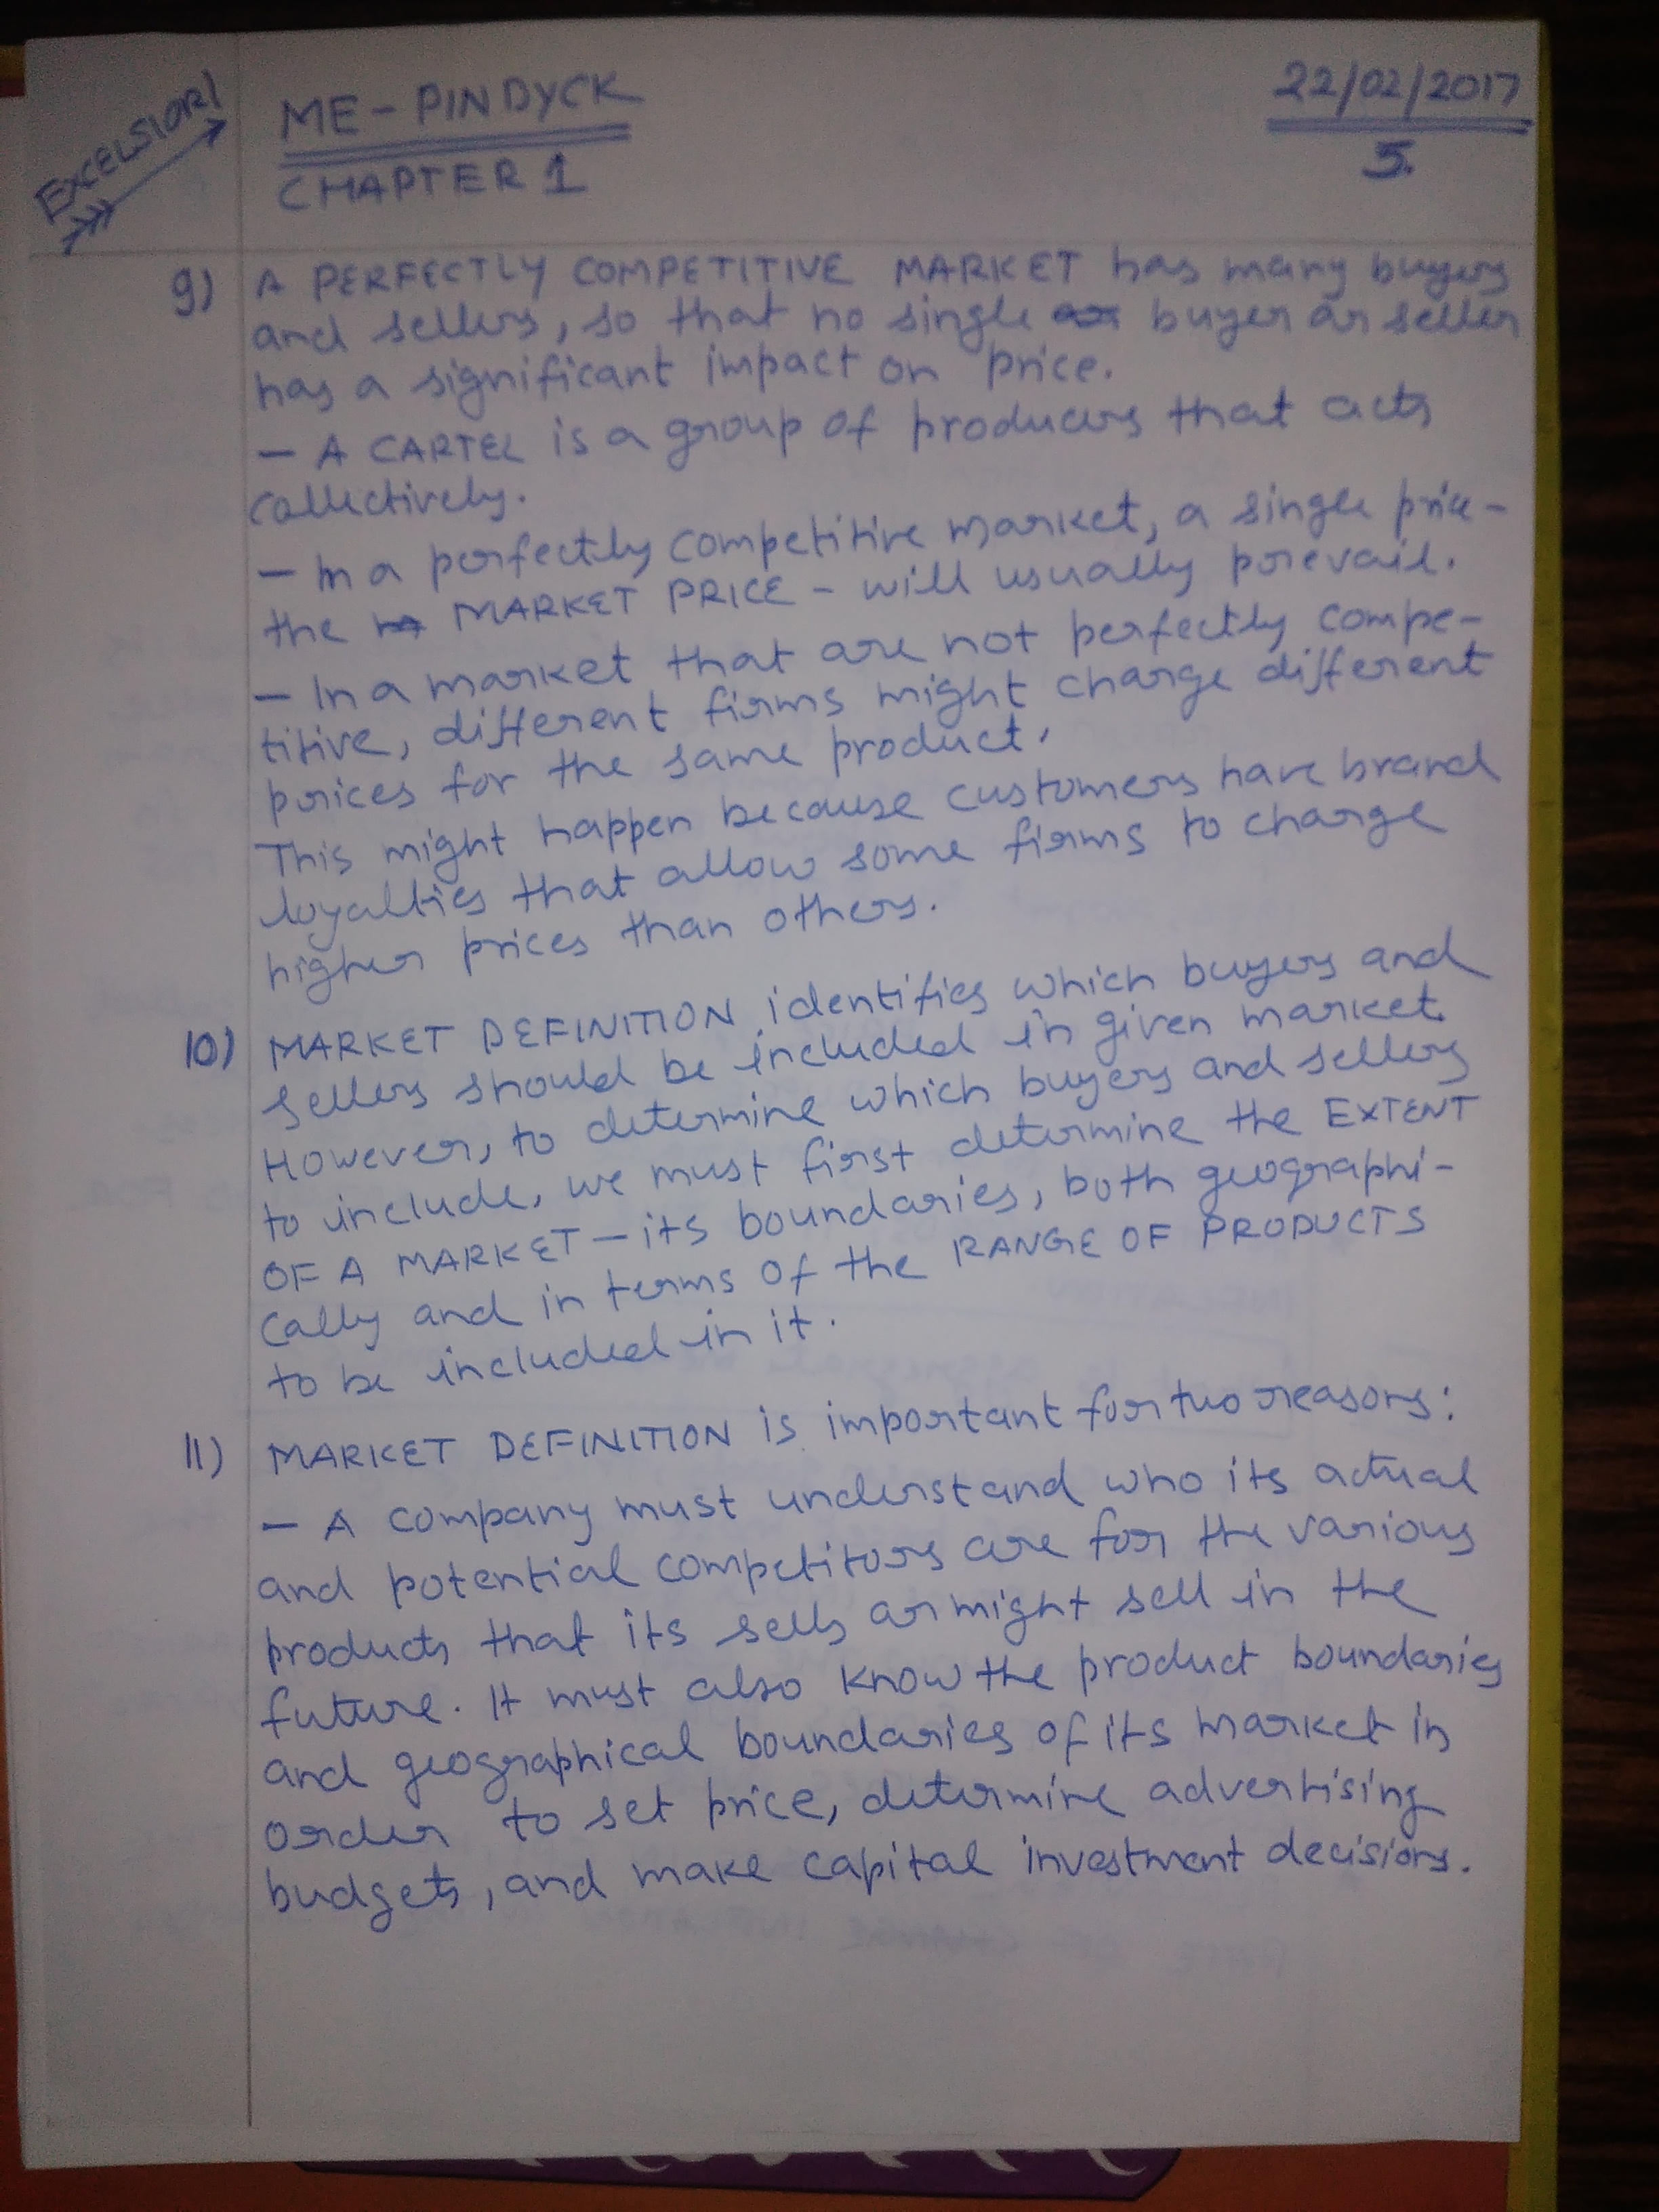 EXCELSIOR!
ME - PINDYCK
CHAPTER 1
22/02/2017
5.
9) A PERFECTLY COMPETITIVE MARKET has many buyers
and sellers, so that no single buyer or seller
has a significant impact on price.
— A CARTEL is a group of producers that acts
collectively.
— In a perfectly competitive market, a single price -
the MARKET PRICE - will usually prevail.
— In a market that are not perfectly compe-
titive, different firms might charge different
prices for the same product.
This might happen because customers have brand
loyalties that allow some firms to charge
higher prices than others.
10) MARKET DEFINITION identifies which buyers and
sellers should be included in given market.
However, to determine which buyers and sellers
to include, we must first determine the EXTENT
OF A MARKET — its boundaries, both geographi-
cally and in terms of the RANGE OF PRODUCTS
to be included in it.
11) MARKET DEFINITION is important for two reasons:
— A company must understand who its actual
and potential competitors are for the various
products that its sells or might sell in the
future. It must also know the product boundaries
and geographical boundaries of its market in
order to set price, determine advertising
budgets, and make capital investment decisions.